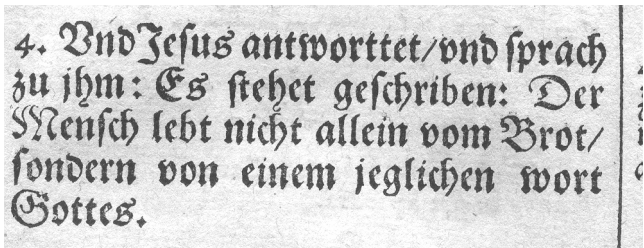 4. Vnd Jeſus antworttet/ vnd ſprach
zu jhm: Es ſtehet geſchriben: Der
Menſch lebt nicht allein vom Brot/
ſondern von einem jeglichen wort
Gottes.